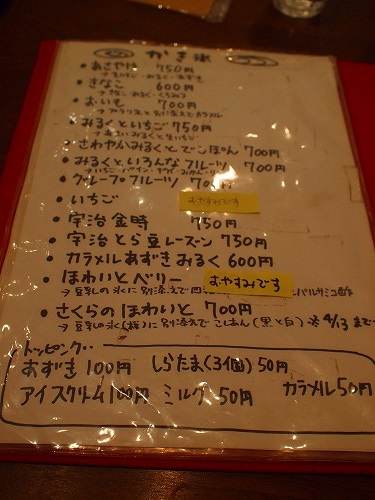 かき氷
・あさやけ 750円
・きなこ 600円
・おいも 700円
・みるくといちご 750円
・さわやかみるくとでこぽん 700円
・みるくといろんなフルーツ 700円
・グレープフルーツ 700円
・いちご おやすみです
・宇治金時 750円
・宇治とら豆レーズン 750円
・カラメルあずきみるく 600円
・ほわいとベリー おやすみです
→豆乳の氷に別添えで バルサミコ酢
・さくらのほわいと 700円
→豆乳の氷(桜)に別添えで こしあん(黒と白) ※4/13まで
トッピング‥
あずき100円 しらたま(3個)50円
アイスクリーム100円 ミルク 50円 カラメル50円